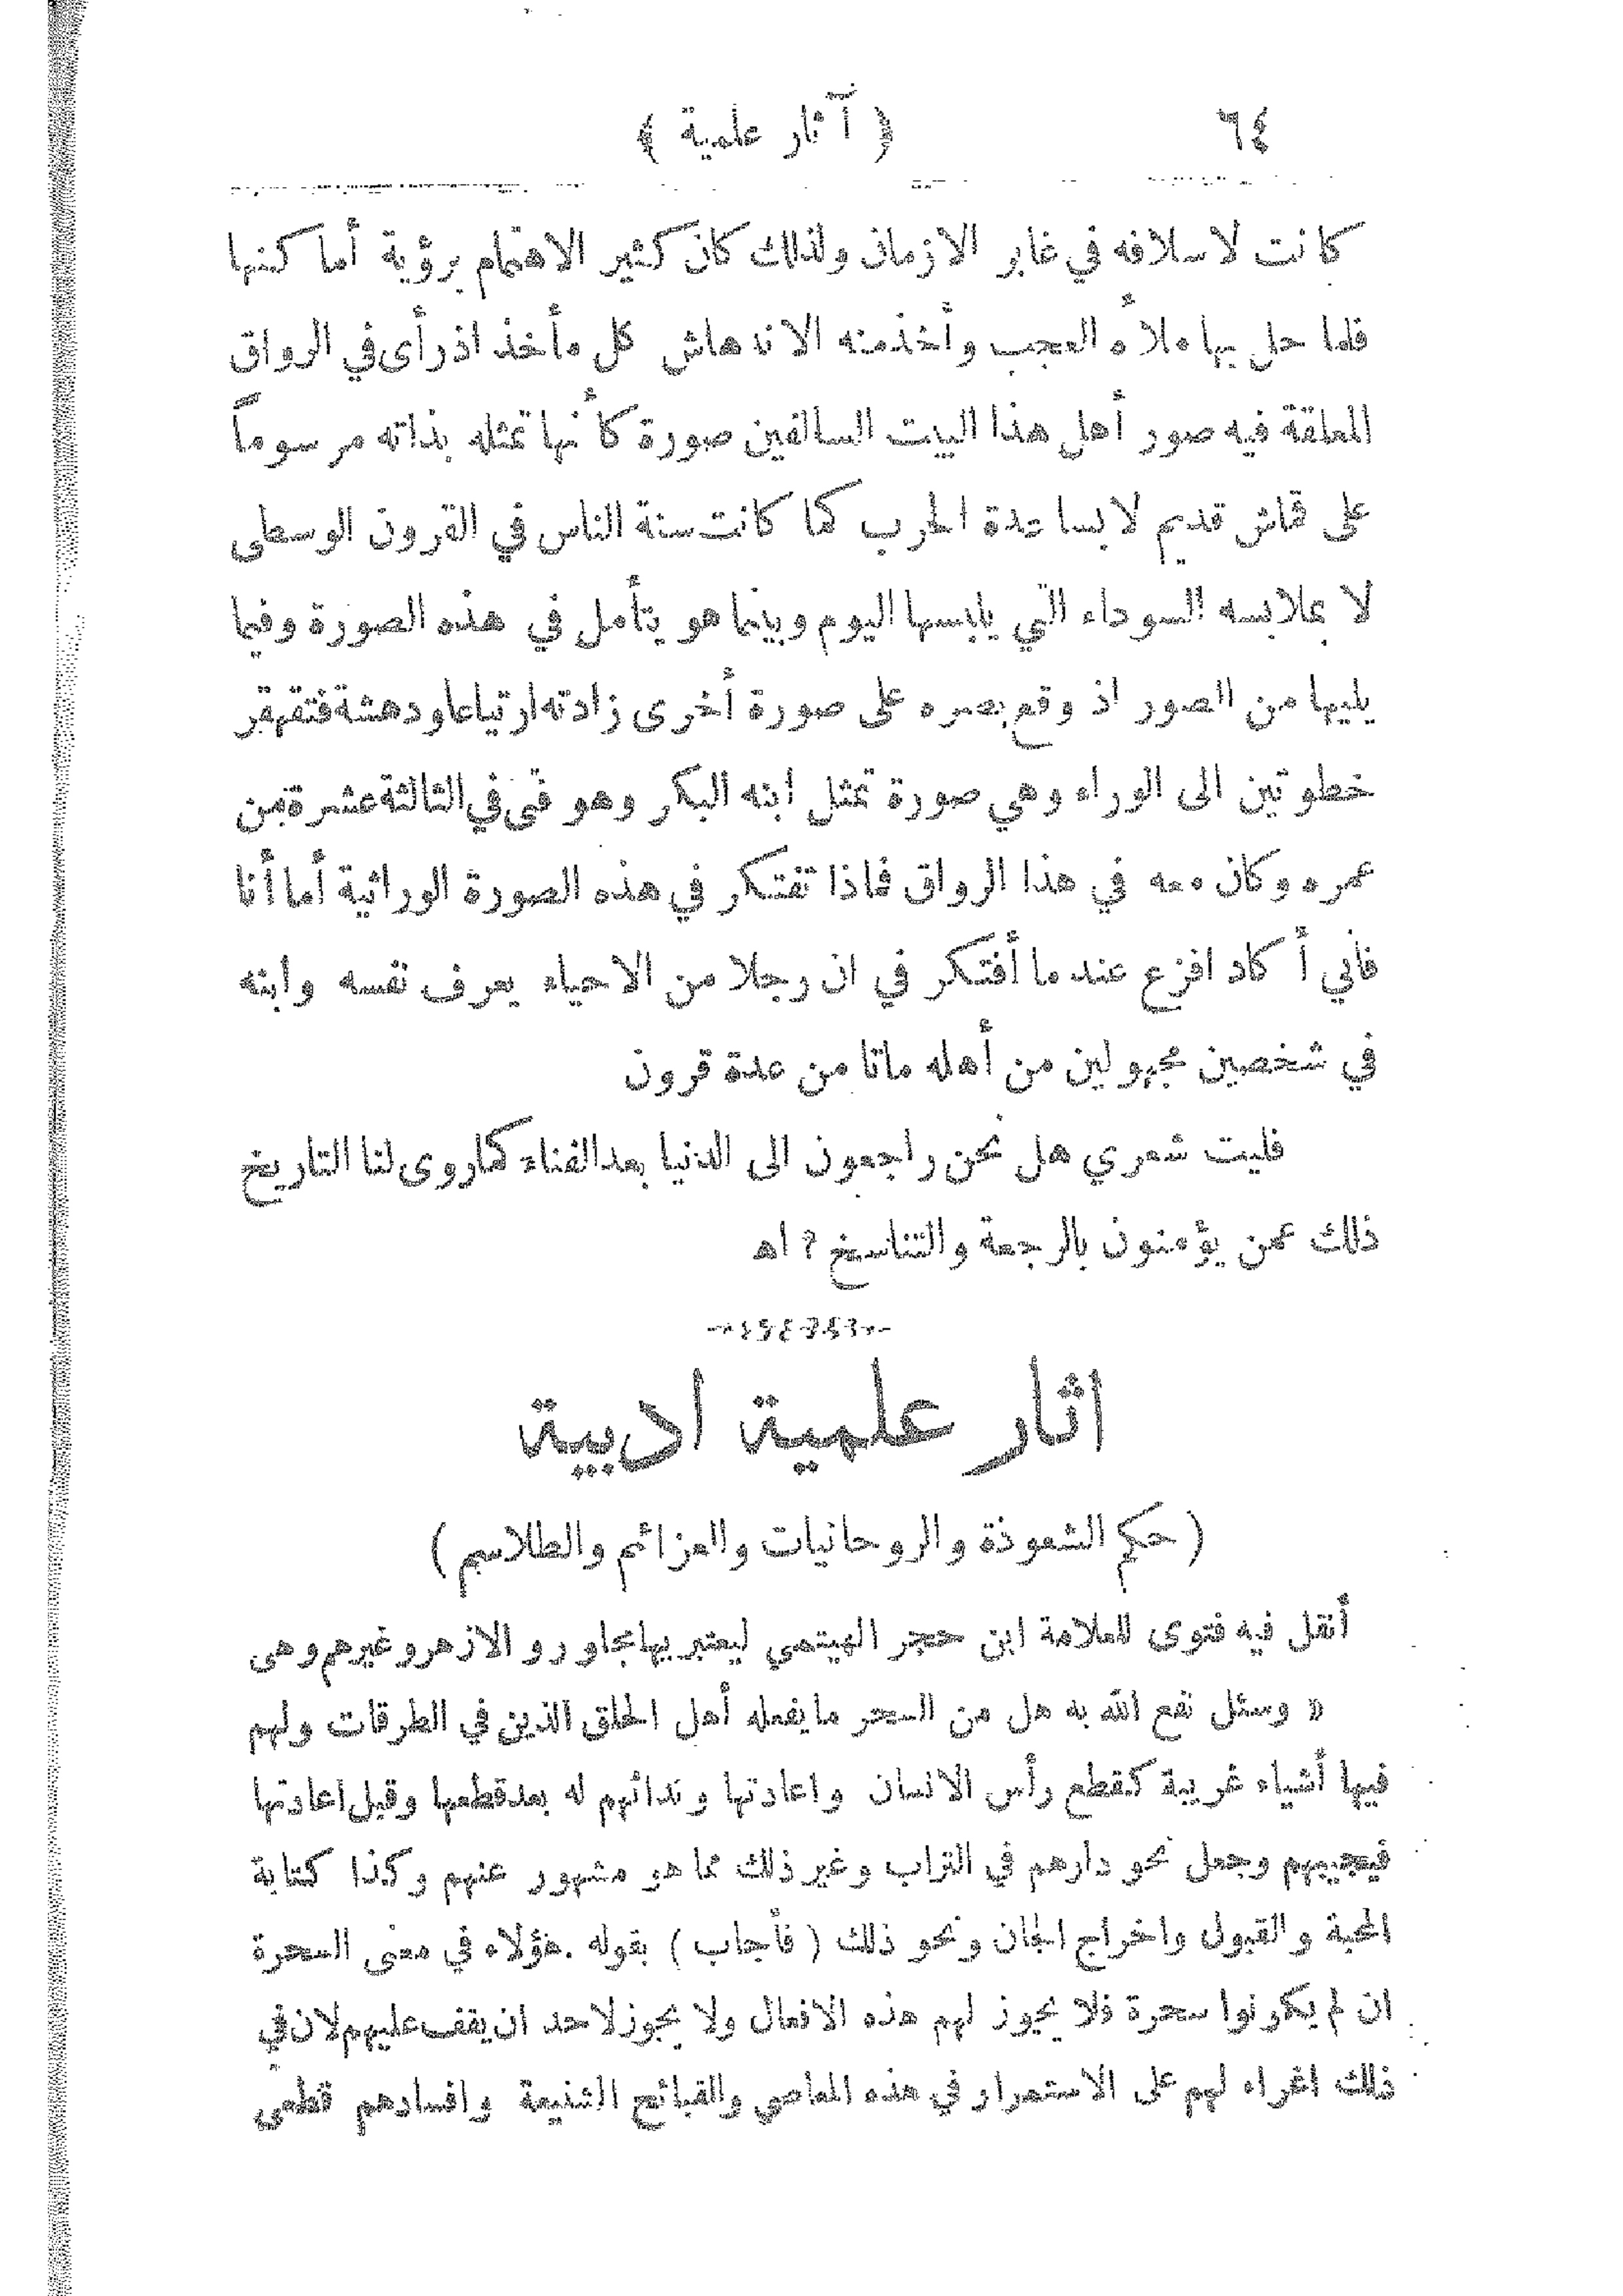 ٦٤ ( آثار علمية )
كانت لاسلافه في غابر الازمان ولذلك كان كثير الاهتمام برؤية أماكنها
فلما حل بها ملأه العجب وأخذمنه الاندهاش كل مأخذ اذرأى في الرواق
المعلقة فيه صور أهل هذا البيت السالفين صورة كأنها تمثله بذاته مرسوماً
على قماش قديم لابسا عدة الحرب كما كانت سنة الناس في القرون الوسطى
لا بملابسه السوداء التي يلبسها اليوم وبينما هو يتأمل في هذه الصورة وفيما
يليها من الصور اذ وقع بصره على صورة أخرى زادته ارتياعا ودهشة فتقهقر
خطوتين الى الوراء وهي صورة تمثل ابنه البكر وهو فتى في الثالثة عشرة من
عمره وكان معه في هذا الرواق فماذا تفتكر في هذه الصورة الوراثية أما أنا
فأني أكاد افزع عند ما أفتكر في ان رجلا من الاحياء يعرف نفسه وابنه
في شخصين مجهولين من أهله ماتا من عدة قرون
فليت شعري هل نحن راجعون الى الدنيا بعد الفناء كما روى لنا التاريخ
ذلك عمن يؤمنون بالرجعة والتناسخ ? اه
اثار علمية ادبية
( حكم الشعوذة والروحانيات والعزائم والطلاسم )
أنقل فيه فتوى للعلامة ابن حجر الهيتمي ليعتبر بها مجاورو الازهر وغيرهم وهى
« وسئل نفع الله به هل من السحر ما يفعله أهل الحلق الذين في الطرقات ولهم
فيها أشياء غريبة كقطع رأس الانسان واعادتها وندائهم له بعد قطعها وقبل اعادتها
فيجيبهم وجعل نحو دارهم في التراب وغير ذلك مما هو مشهور عنهم وكذا كتابة
المحبة والقبول واخراج الجان ونحو ذلك ( فأجاب ) بقوله . هؤلاء في معنى السحرة
ان لم يكونوا سحرة فلا يجوز لهم هذه الافعال ولا يجوز لاحد ان يقف عليهم لان في
ذلك اغراء لهم على الاستمرار في هذه المعاصي والقبائح الشنيعة وافسادهم قطعى